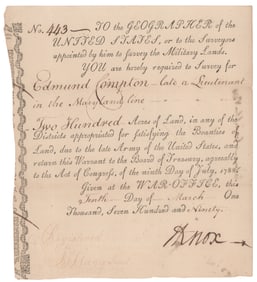 No. 443 — TO the GEOGRAPHER of the
UNITED STATES, or to the Surveyors
appointed by him to survey the Military Lands.
YOU are hereby required to Survey for
Edmund Compton — late a Lieutenant
in the Maryland line
Two Hundred Acres of Land, in any of the
Districts appropriated for satisfying the Bounties of
Land, due to the late Army of the United States, and
return this Warrant to the Board of Treasury, agreeably
to the Act of Congress, of the ninth Day of July, 1788.
Given at the WAR-OFFICE, this
Tenth Day of March One
Thousand, Seven Hundred and Ninety.
HKnox
Registered